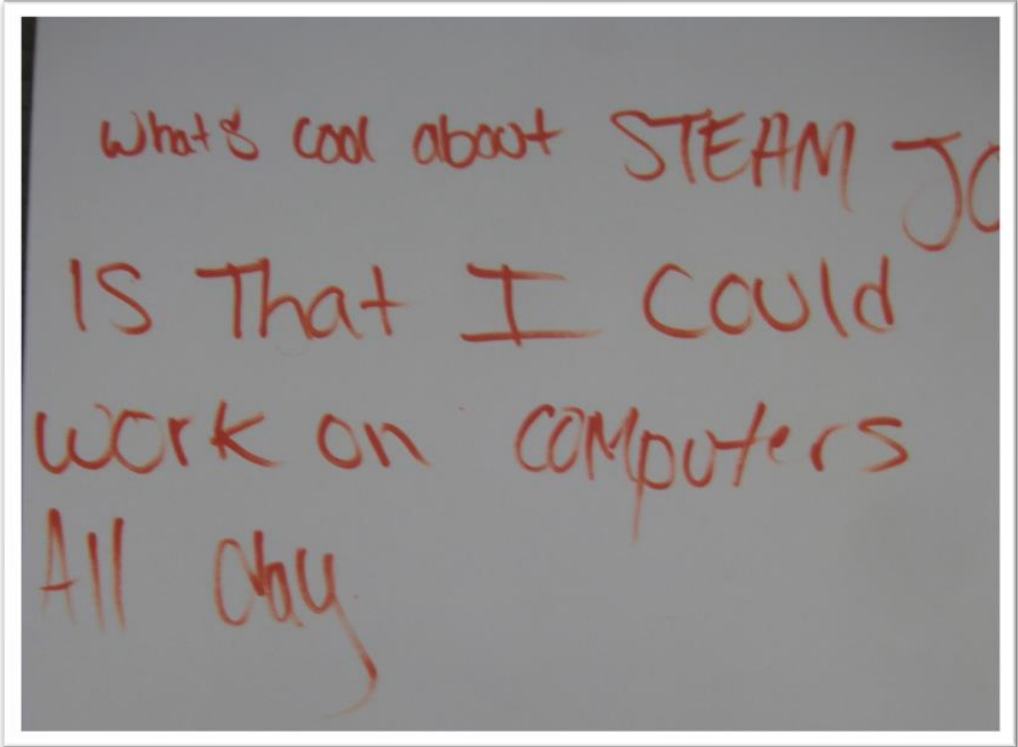 what's cool about STEAM JO
IS That I could
work on computers
All day